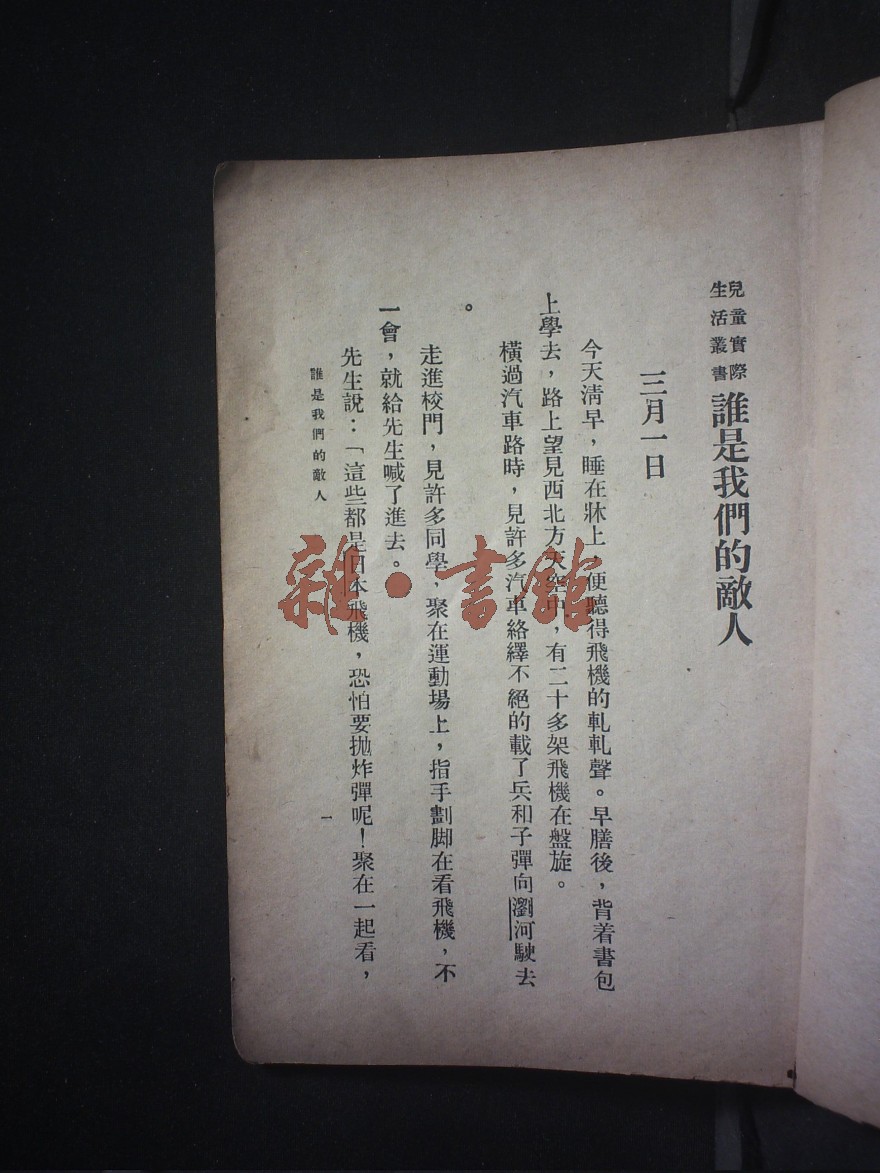 兒童實際
生活叢書
誰是我們的敵人
三月一日
今天淸早，睡在牀上，便聽得飛機的軋軋聲。早膳後，背着書包
上學去，路上望見西北方天空中，有二十多架飛機在盤旋。
橫過汽車路時，見許多汽車絡繹不絕的載了兵和子彈向瀏河駛去
。
走進校門，見許多同學，聚在運動場上，指手劃脚在看飛機，不
一會，就給先生喊了進去。
先生說：「這些都是日本飛機，恐怕要抛炸彈呢！聚在一起看，
誰是我們的敵人
一
雜·書館